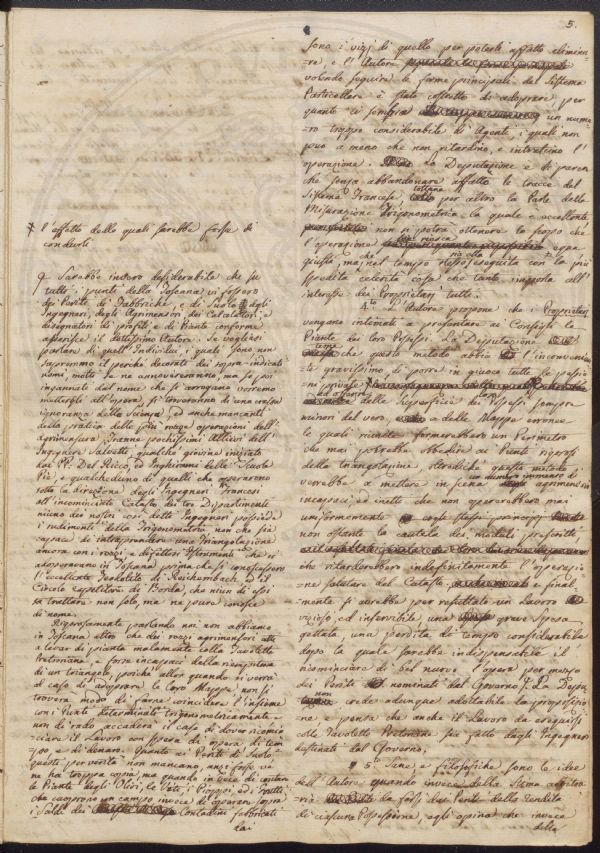 5.
✝ l'effetto delle quali sarebbe forse di
renderle
q Sarebbe invero desiderabile che su
tutti i punti della Toscana vi fossero
dei Periti di Fabbriche, e di Suolo degli
Ingegneri, degli Agrimensori dei Calcolatori, e
disegnatori di profili e di Piante conforme
asserisce il dottissimo Autore. Se vogliasi
parlare di quell'Individui, i quali sono non
sapremmo il perchè decorati dei sopra-indicati
nomi, molti se ne annovereranno ma se poi
ingannati dal nome che si arrogano vorremo
metterli all'opera, si troveranno di una crassa
ignoranza della Scienza, ed anche mancanti
della pratica delle più rozze operazioni dell'
agrimensura. Tranne pochissimi Allievi dell'
Ingegnere Salvetti, qualche giovine iniziato
dai PP. Del Ricco, ed Inghirami delle Scuole
Pie, e qualcheduno di quelli che operarono
sotto la direzione degli Ingegneri Francesi
all'incominciato Catasto dei tre Dipartimenti
niuno dei nostri così detti Ingegneri possiede
i rudimenti della Trigonometria non che sia
capace di intraprendere una Triangolazione
ancora con i rozzi, e difettosi Istrumenti che si
adopravano in Toscana prima che si conoscessero
l'eccellente Teodolite di Reichembach, ed il
Circolo repetitore di Borda, che niun di essi
sa trattare non solo, ma ne pure conosce
di nome.
Rigorosamente parlando noi non abbiamo
in Toscana altro che dei rozzi agrimensori atti
a levar di pianta malamente colla Tavoletta
Pretoriana, e forse incapaci della riempitura
di un triangolo, poichè allor quando si verrà
al caso di adoprare le loro Mappe non si
troverà modo di farne coincidere l'insieme
con i Punti determinati trigonometricamente e
non di rado accaderà il caso di dover ricomin-
ciare il Lavoro con spesa di opera di tem-
po, e di denaro. Quanto ai Periti di Suolo,
questi per verità non mancano, anzi forse ve
ne ha troppa copia, ma quando in vece di contare
le Piante degli Olivi, le Viti, i Pioppi, ed i Frutti
che compongono un campo invece di operare sopra
i Saldi dei Contadini fabbricati
dai
sono i vizj di quello per poterli affatto elimina-
=re, e l'Autore
volendo seguire le forme principali del Sistema
Particellare è stato costretto di adoprare, per
quanto ci sembra un nume-
=ro troppo considerabile di Agenti, i quali non
può a meno che non ritardino, e intralcino l'
operazione. La Deputazione è di parere
che senza abbandonare affatto le tracce del
Sistema Francese, per altro la Parte della
Misurazione Trigonometrica la quale è eccellente
non si potrà ottenere lo scopo che
l'operazione riesca equa
giusta, ma nel tempo stesso eseguita con la più
spedita celerità cosa che tanto importa all'
interesse dei Proprietarj tutti.
4.to L'Autore propone che i Proprietarj
vengano intimati a presentare ai Consigli le
Piante dei loro Possessi. La Deputazione
teme che questo metodo abbia l'inconvenien-
te gravissimo di porre in giuoco tutte le passio-
=ni private
ed ottenere delle Superficie dei Possessi sempre
minori del vero, e delle Mappe erronee
le quali riunite formerebbero un Perimetro
che mai potrebbe obbedire ai Punti rigorosi
della triangolazione, oltredichè questo metodo
verrebbe a mettere in scena un numero immenso di agrimensori
incapaci ed inetti che non opererebbero mai
uniformemente e cogli stessi principj
non ostante la cautela dei moduli prescritti,
che ritarderebbero indefinitamente l'operazio-
=ne salutare del Catasto e final-
=mente si avrebbe per resultato un Lavoro
vizioso, ed inservibile, una grave spesa
gettata, una perdita di tempo considerabile
dopo la quale sarebbe indispensabile il
ricominciare di bel nuovo l'opera per mezzo
dei Periti nominati dal Governo. La Depu-
non crede adunque adottabile la proposizio-
=ne, e pensa che anche il Lavoro da eseguirsi
colle Tavolette Pretoriane sia fatto dagli Ingegneri
destinati dal Governo.
5.to Sane, e filosofiche sono le idee
dell'Autore quando invece della Stima arbitra-
ria da farsi dai Periti della rendita
di ciascuna Possessione, egli opina che invece
della